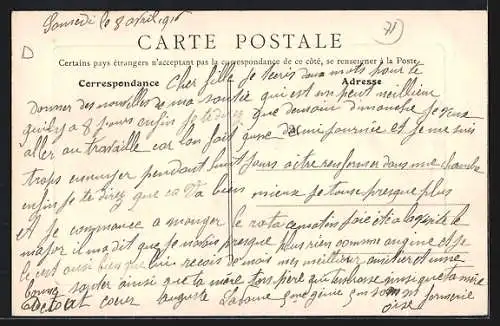 Samedi le 8 avril 1916
71
D
CARTE POSTALE
Certains pays étrangers n'acceptant pas la correspondance de ce côté, se renseigner à la Poste
Correspondance
Adresse
Cher fille je técris deux mots pour te
donner des nouvelles de ma santée qui est un peut meillieur
qu'il y a 8 jours enfin je te direz que demain dimanche je veux
aller au travaille car lon fait que demi journée et je me suis
trop ennuyer pendant huit jours a être renfermer dans une chambre
enfin je te direz que ca va bien mieux je tousse presque plus
et je commence a manger le
major il ma dit que je navais presque plus rien comme angine et je
le sait aussi bien que lui recois de mois mes meillieur amitier et une
bonne santer ainsi que ta mère ton père qui tembrasse ainsique ta mère
De tout cœur auguste
oise